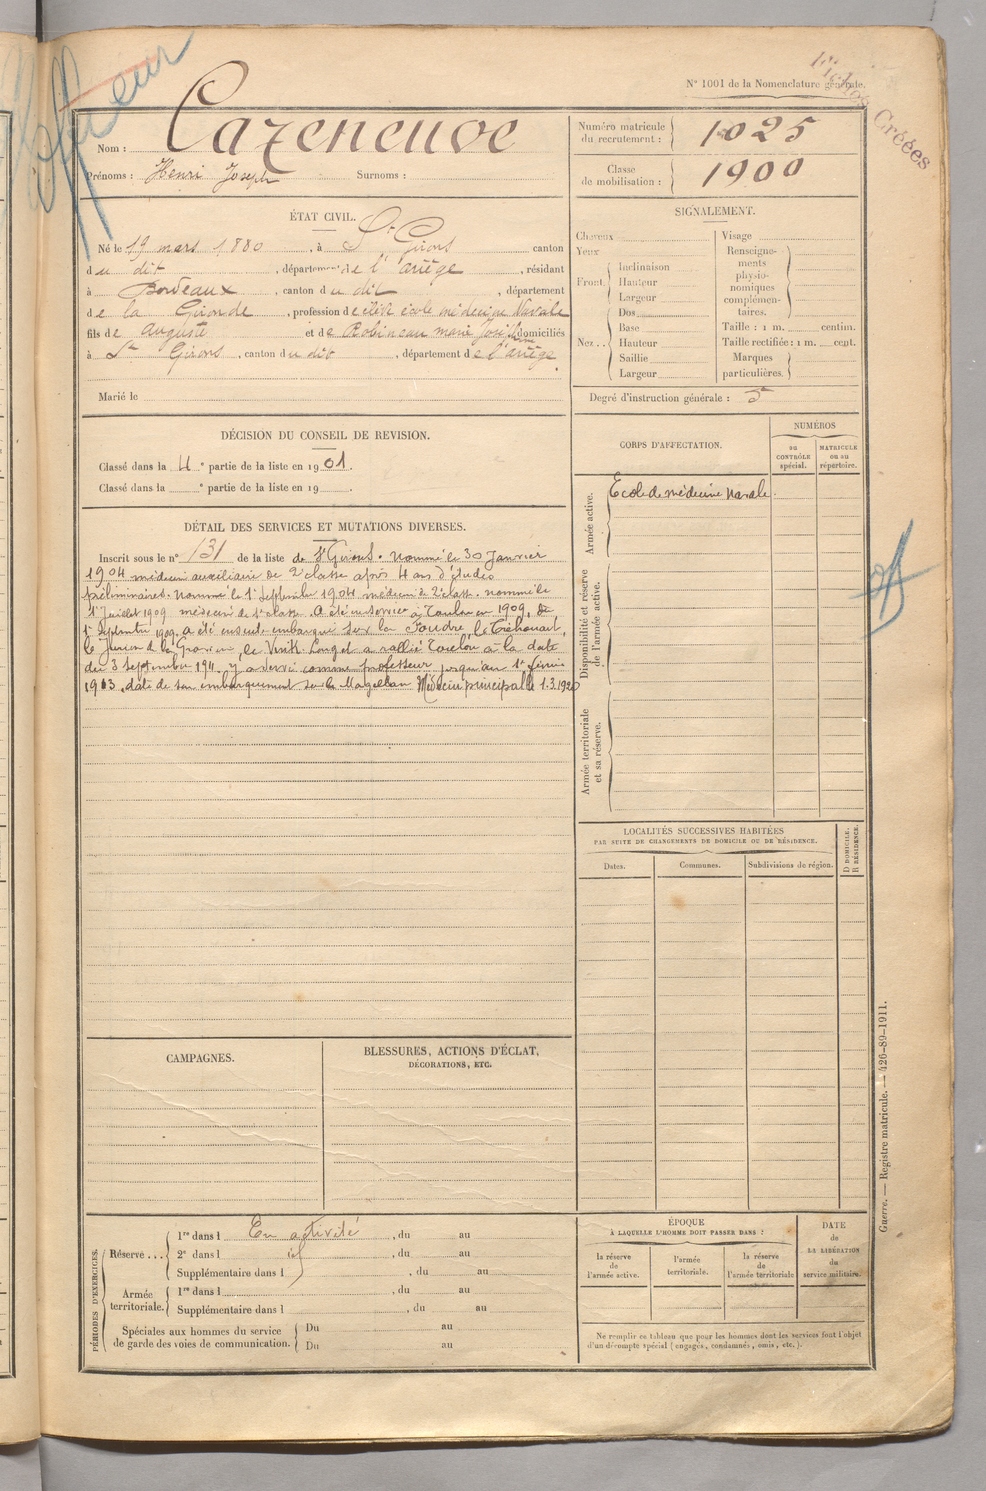 officier
Fiches Créées
N° 1001 de la Nomenclature générale.
Nom : Cazeneuve
Prénoms : Henri Joseph Surnoms :
Numéro matricule du recrutement : 1025
Classe de mobilisation : 1900
ÉTAT CIVIL.
Né le 19 mars 1880, à St Girons canton
du dit, département de l'ariège, résidant
à Bordeaux, canton du dit, département
de la Gironde, profession d'élève école médecine Navale
fils de auguste et de Robineau marie domiciliés
à St Girons, canton du dit, département de l'ariège
Marié le
SIGNALEMENT.
Cheveux
Yeux
Front Inclinaison
Hauteur
Largeur
Nez.. Dos
Base
Hauteur
Saillie
Largeur
Visage
Renseigne-
ments
physio-
nomiques
complémen-
taires.
Taille : 1 m. centim.
Taille rectifiée : 1 m. cent.
Marques
particulières.
Degré d'instruction générale : 5
DÉCISION DU CONSEIL DE REVISION.
Classé dans la 4e partie de la liste en 1901.
Classé dans la e partie de la liste en 19
DÉTAIL DES SERVICES ET MUTATIONS DIVERSES.
Inscrit sous le n° 131 de la liste de St Girons. Nommé le 30 Janvier
1904 médecin auxiliaire de 2e classe après 4 ans d'études
préliminaires. Nommé le 1er Septembre 1904 médecin de 2e classe. nommé le
1er Juillet 1909 médecin de 1e classe. A été en service à Toulon en 1909, de
1er Septembre 1909. a été ensuite embarqué sur la Foudre, le Tréhouart,
le Jurien de la Gravière, le et a rallié Toulon à la date
du 3 Septembre 1911, y a servi comme professeur jusqu'au 1er février
1913, date de son embarquement sur le Magellan Médecin principal le 1.3.1920
CORPS D'AFFECTATION.
NUMÉROS
au CONTRÔLE spécial.
MATRICULE ou au répertoire.
Armée active.
Ecole de médecine Navale
Disponibilité et réserve de l'armée active.
Armée territoriale et sa réserve.
LOCALITÉS SUCCESSIVES HABITÉES
PAR SUITE DE CHANGEMENTS DE DOMICILE OU DE RÉSIDENCE.
D DOMICILE.
R RÉSIDENCE.
Dates. Communes. Subdivisions de région.
CAMPAGNES.
BLESSURES, ACTIONS D'ÉCLAT,
DÉCORATIONS, ETC.
PÉRIODES D'EXERCICES.
Réserve... 1re dans l En activité, du au
2e dans l id, du au
Supplémentaire dans l, du au
Armée territoriale. 1re dans l, du au
Supplémentaire dans l, du au
Spéciales aux hommes du service
de garde des voies de communication. Du au
Du au
ÉPOQUE
À LAQUELLE L'HOMME DOIT PASSER DANS :
la réserve de l'armée active.
l'armée territoriale.
la réserve de l'armée territoriale
DATE de LA LIBÉRATION du service militaire.
Ne remplir ce tableau que pour les hommes dont les services font l'objet
d'un décompte spécial (engagés, condamnés, omis, etc.).
Guerre. — Registre matricule. — 426-89-1911.